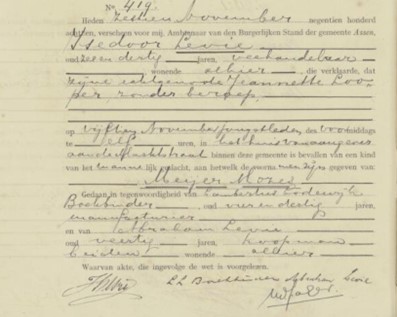 No. 419
Heden zestien November negentien honderd
achttien, verscheen voor mij, Ambtenaar van den Burgerlijken Stand der gemeente Assen,
Isedoor Levie
oud zes en dertig jaren, veehandelaar
wonende alhier, die verklaarde, dat
zijne echtgenoote Jeannette Coo-
per, zonder beroep,
op vijftien November jongstleden, des voormiddags
te elf uren, in het huis
binnen deze gemeente is bevallen van een kind
van het mannelijk geslacht, aan hetwelk zijn gegeven
Meijer Mozes
Gedaan in tegenwoordigheid van Lambertus Lodewijk
Boekbinder, oud vier en dertig jaren,
manufacturier
en van Abraham Levie
oud veertig jaren, koopman
beiden wonende alhier
Waarvan akte, die ingevolge de wet is voorgelezen.
Levie